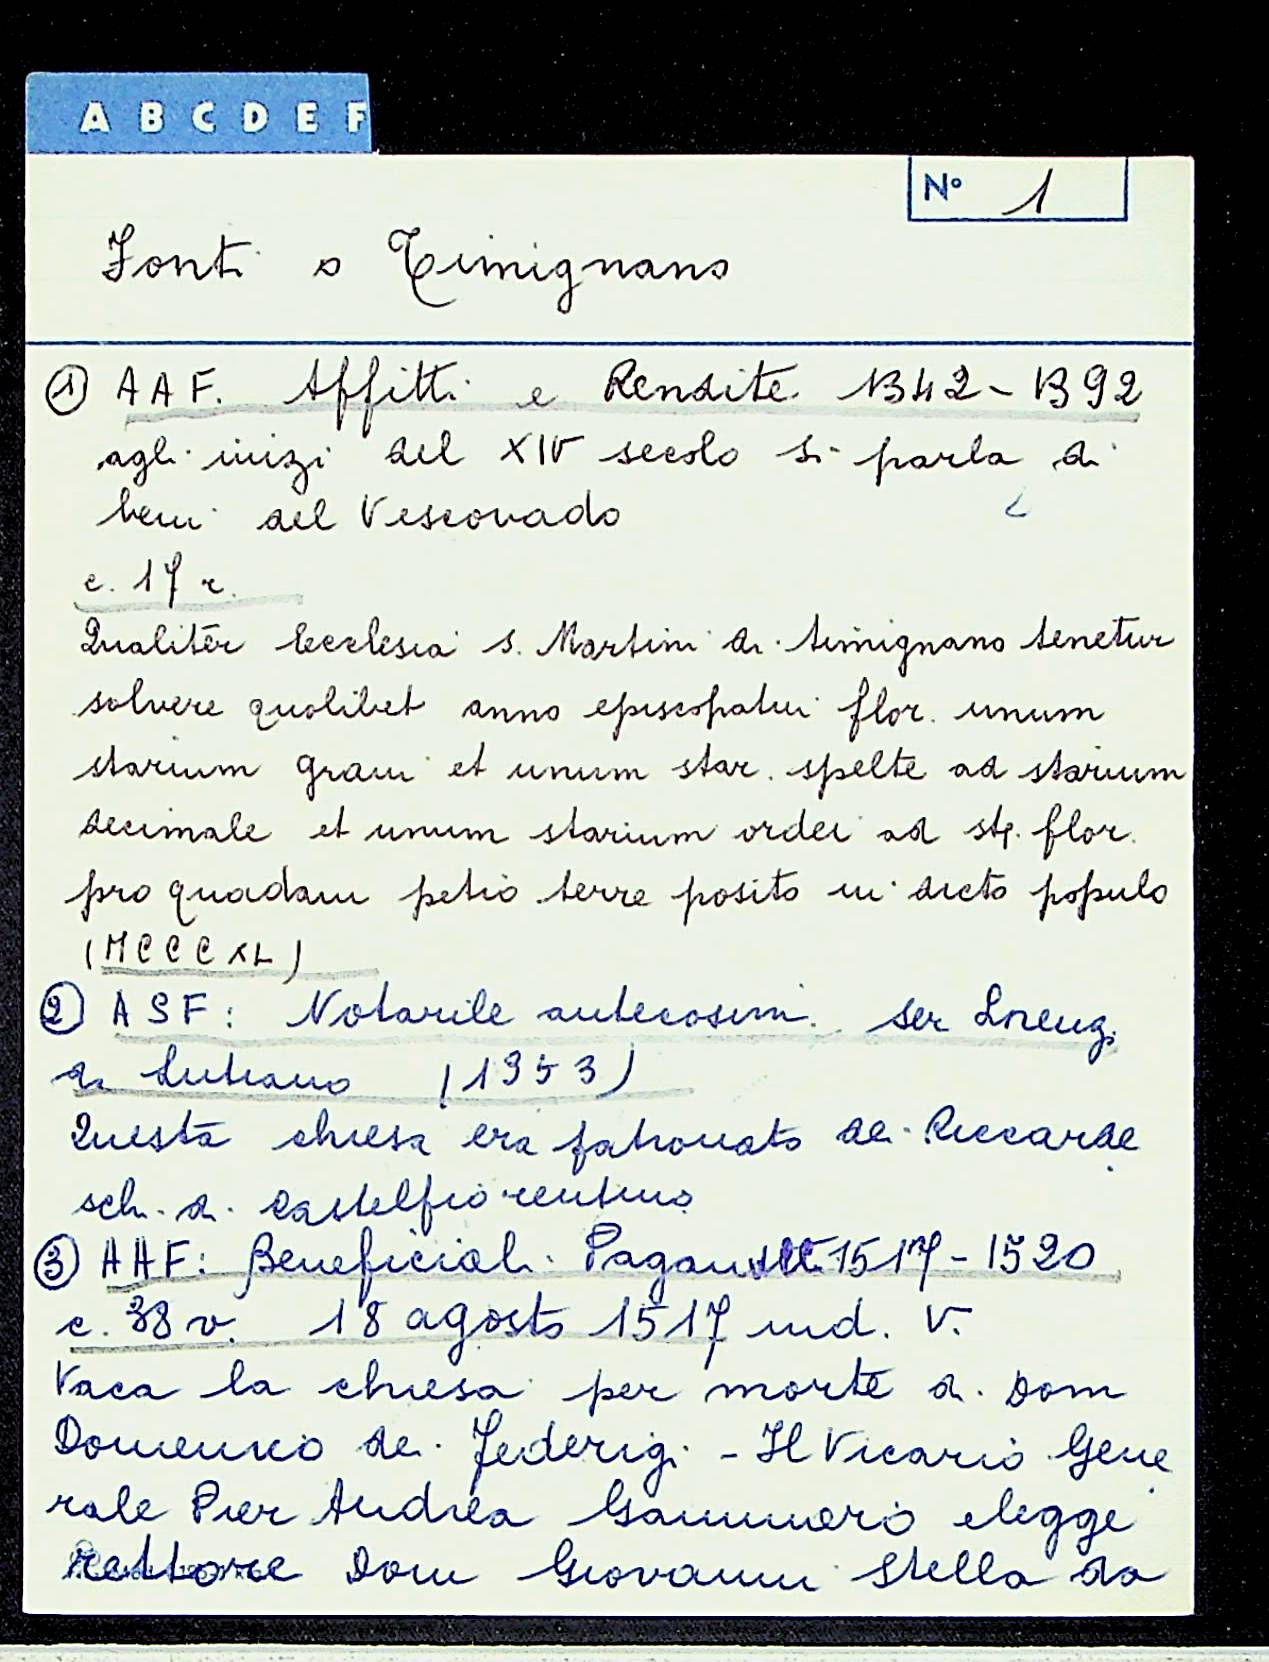 A B C D E F
N° 1
Fonti o Timignano
① AAF. Affitti e Rendite 1342-1392
agli inizi del XIV secolo si parla di
beni del Vescovado
c. 17 r.
Qualiter Ecclesia S. Martini di Timignano tenetur
solvere quolibet anno episcopatui flor. unum
starium grani et unum star. spelte ad starium
decimale et unum starium ordei ad st. flor.
pro quadam petio terre posito in dicto populo
(MCCCXL)
② ASF: Notarile antecosim. ser Lorenz.
da Lutiano (1353)
Questa chiesa era patronato dei Riccarde
sch. di Castelfiorentino
③ AAF: Beneficiali Paganucci 1517-1520
c. 38 v. 18 agosto 1517 ind. V.
Vaca la chiesa per morte di Dom
Domenico dei Federigi - Il Vicario Gene
rale Pier Andrea Gammaro elegge
rettore Dom Giovanni Stella da